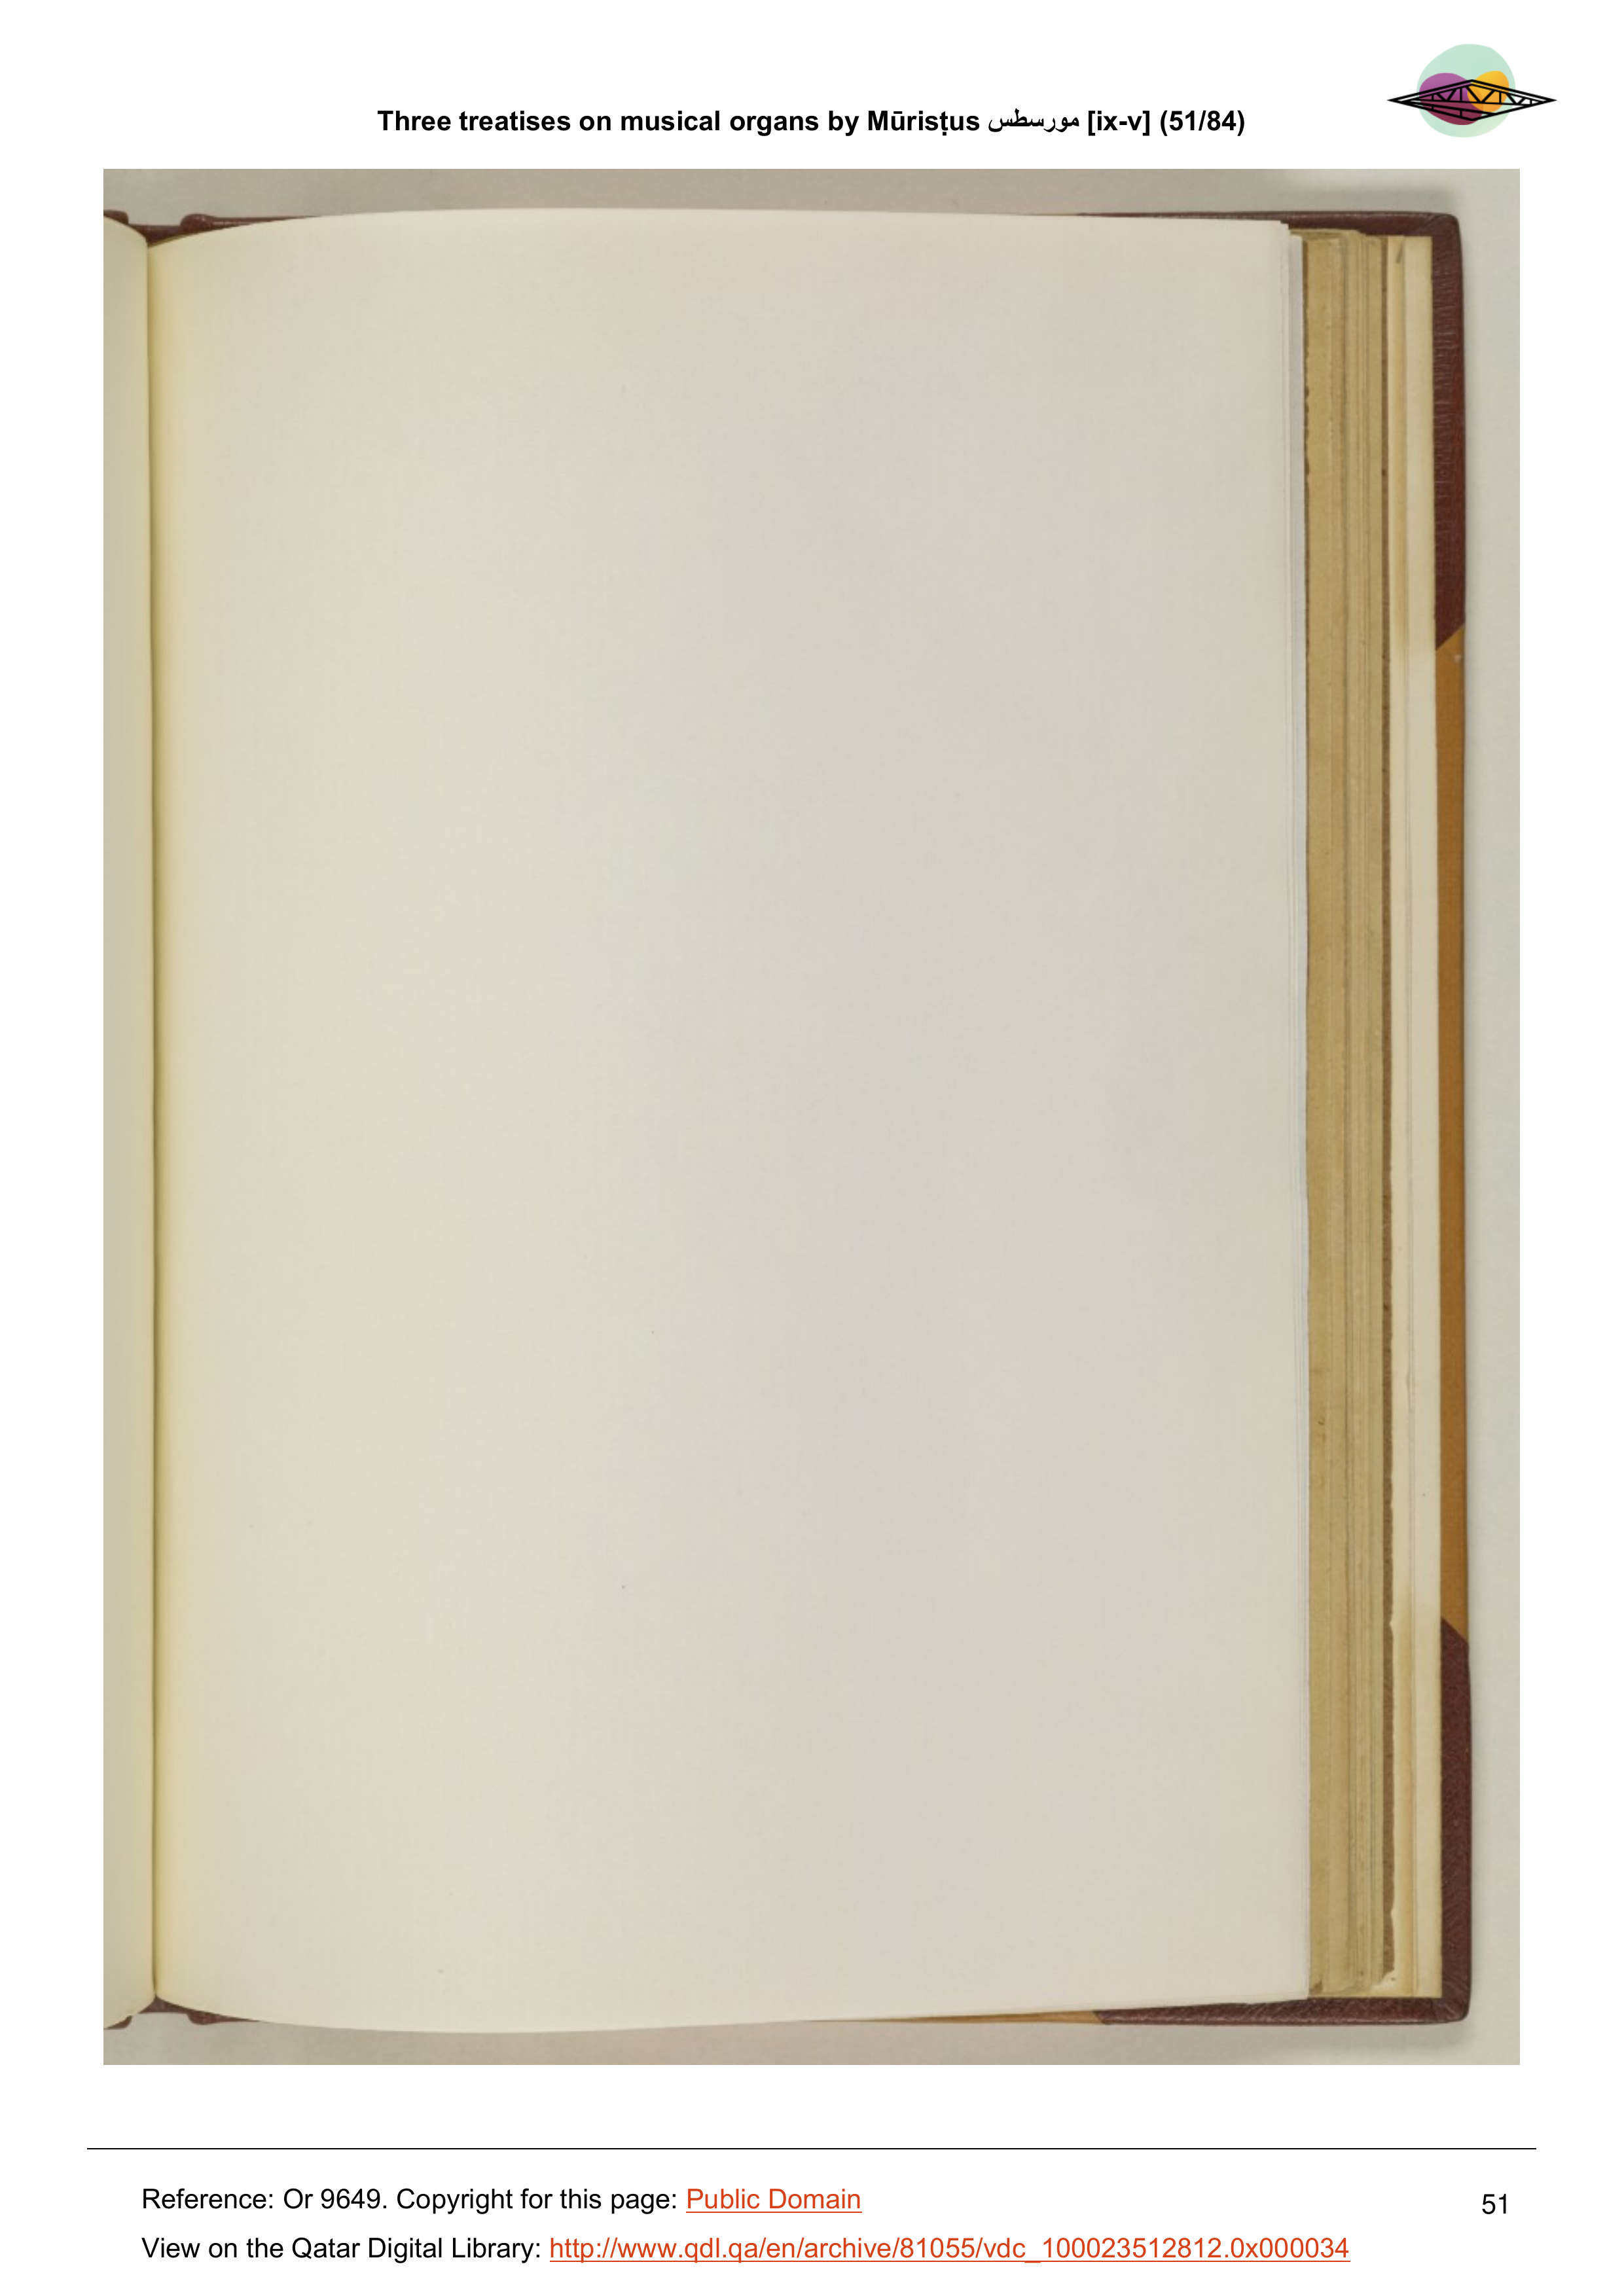 Three treatises on musical organs by Mūrisṭus مورسطس [ix-v] (51/84)
Reference: Or 9649. Copyright for this page: Public Domain
51
View on the Qatar Digital Library: http://www.qdl.qa/en/archive/81055/vdc_100023512812.0x000034